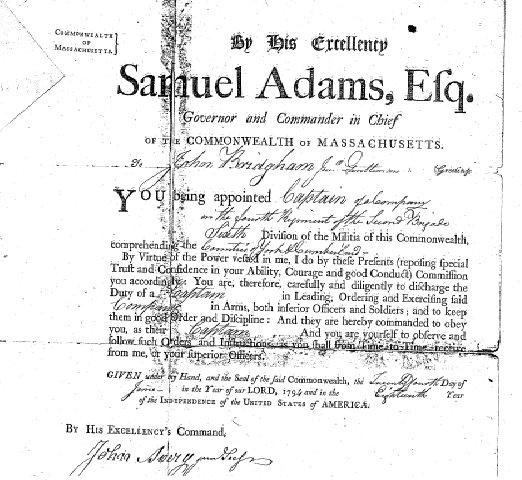 COMMONWEALTH
OF
MASSACHUSETTS.
By His Excellency
Samuel Adams, Eſq.
Governor and Commander in Chief
OF THE COMMONWEALTH OF MASSACHUSETTS.
To John Bridgham Jun Gentleman Greeting
YOU being appointed Captain of a Company
in the fourth Regiment of the Second Brigade
Sixth Diviſion of the Militia of this Commonwealth,
comprehending the Counties of York & Cumberland
By Virtue of the Power veſted in me, I do by theſe Preſents (repoſing ſpecial
Truſt and Confidence in your Ability, Courage and good Conduct) Commiſſion
you accordingly: You are, therefore, carefully and diligently to diſcharge the
Duty of a Captain in Leading, Ordering and Exerciſing ſaid
Company in Arms, both inferior Officers and Soldiers; and to keep
them in good Order and Diſcipline: And they are hereby commanded to obey
you, as their Captain And you are yourſelf to obſerve and
follow ſuch Orders and Inſtructions as you ſhall from Time to Time receive
from me, or your ſuperior Officers.
GIVEN under my Hand, and the Seal of the ſaid Commonwealth, the Twenty fourth Day of
June in the Year of our LORD, 1794 and in the Eighteenth Year
of the INDEPENDENCE of the UNITED STATES of AMERICA.
BY HIS EXCELLENCY'S Command,
John Avery jun Secy